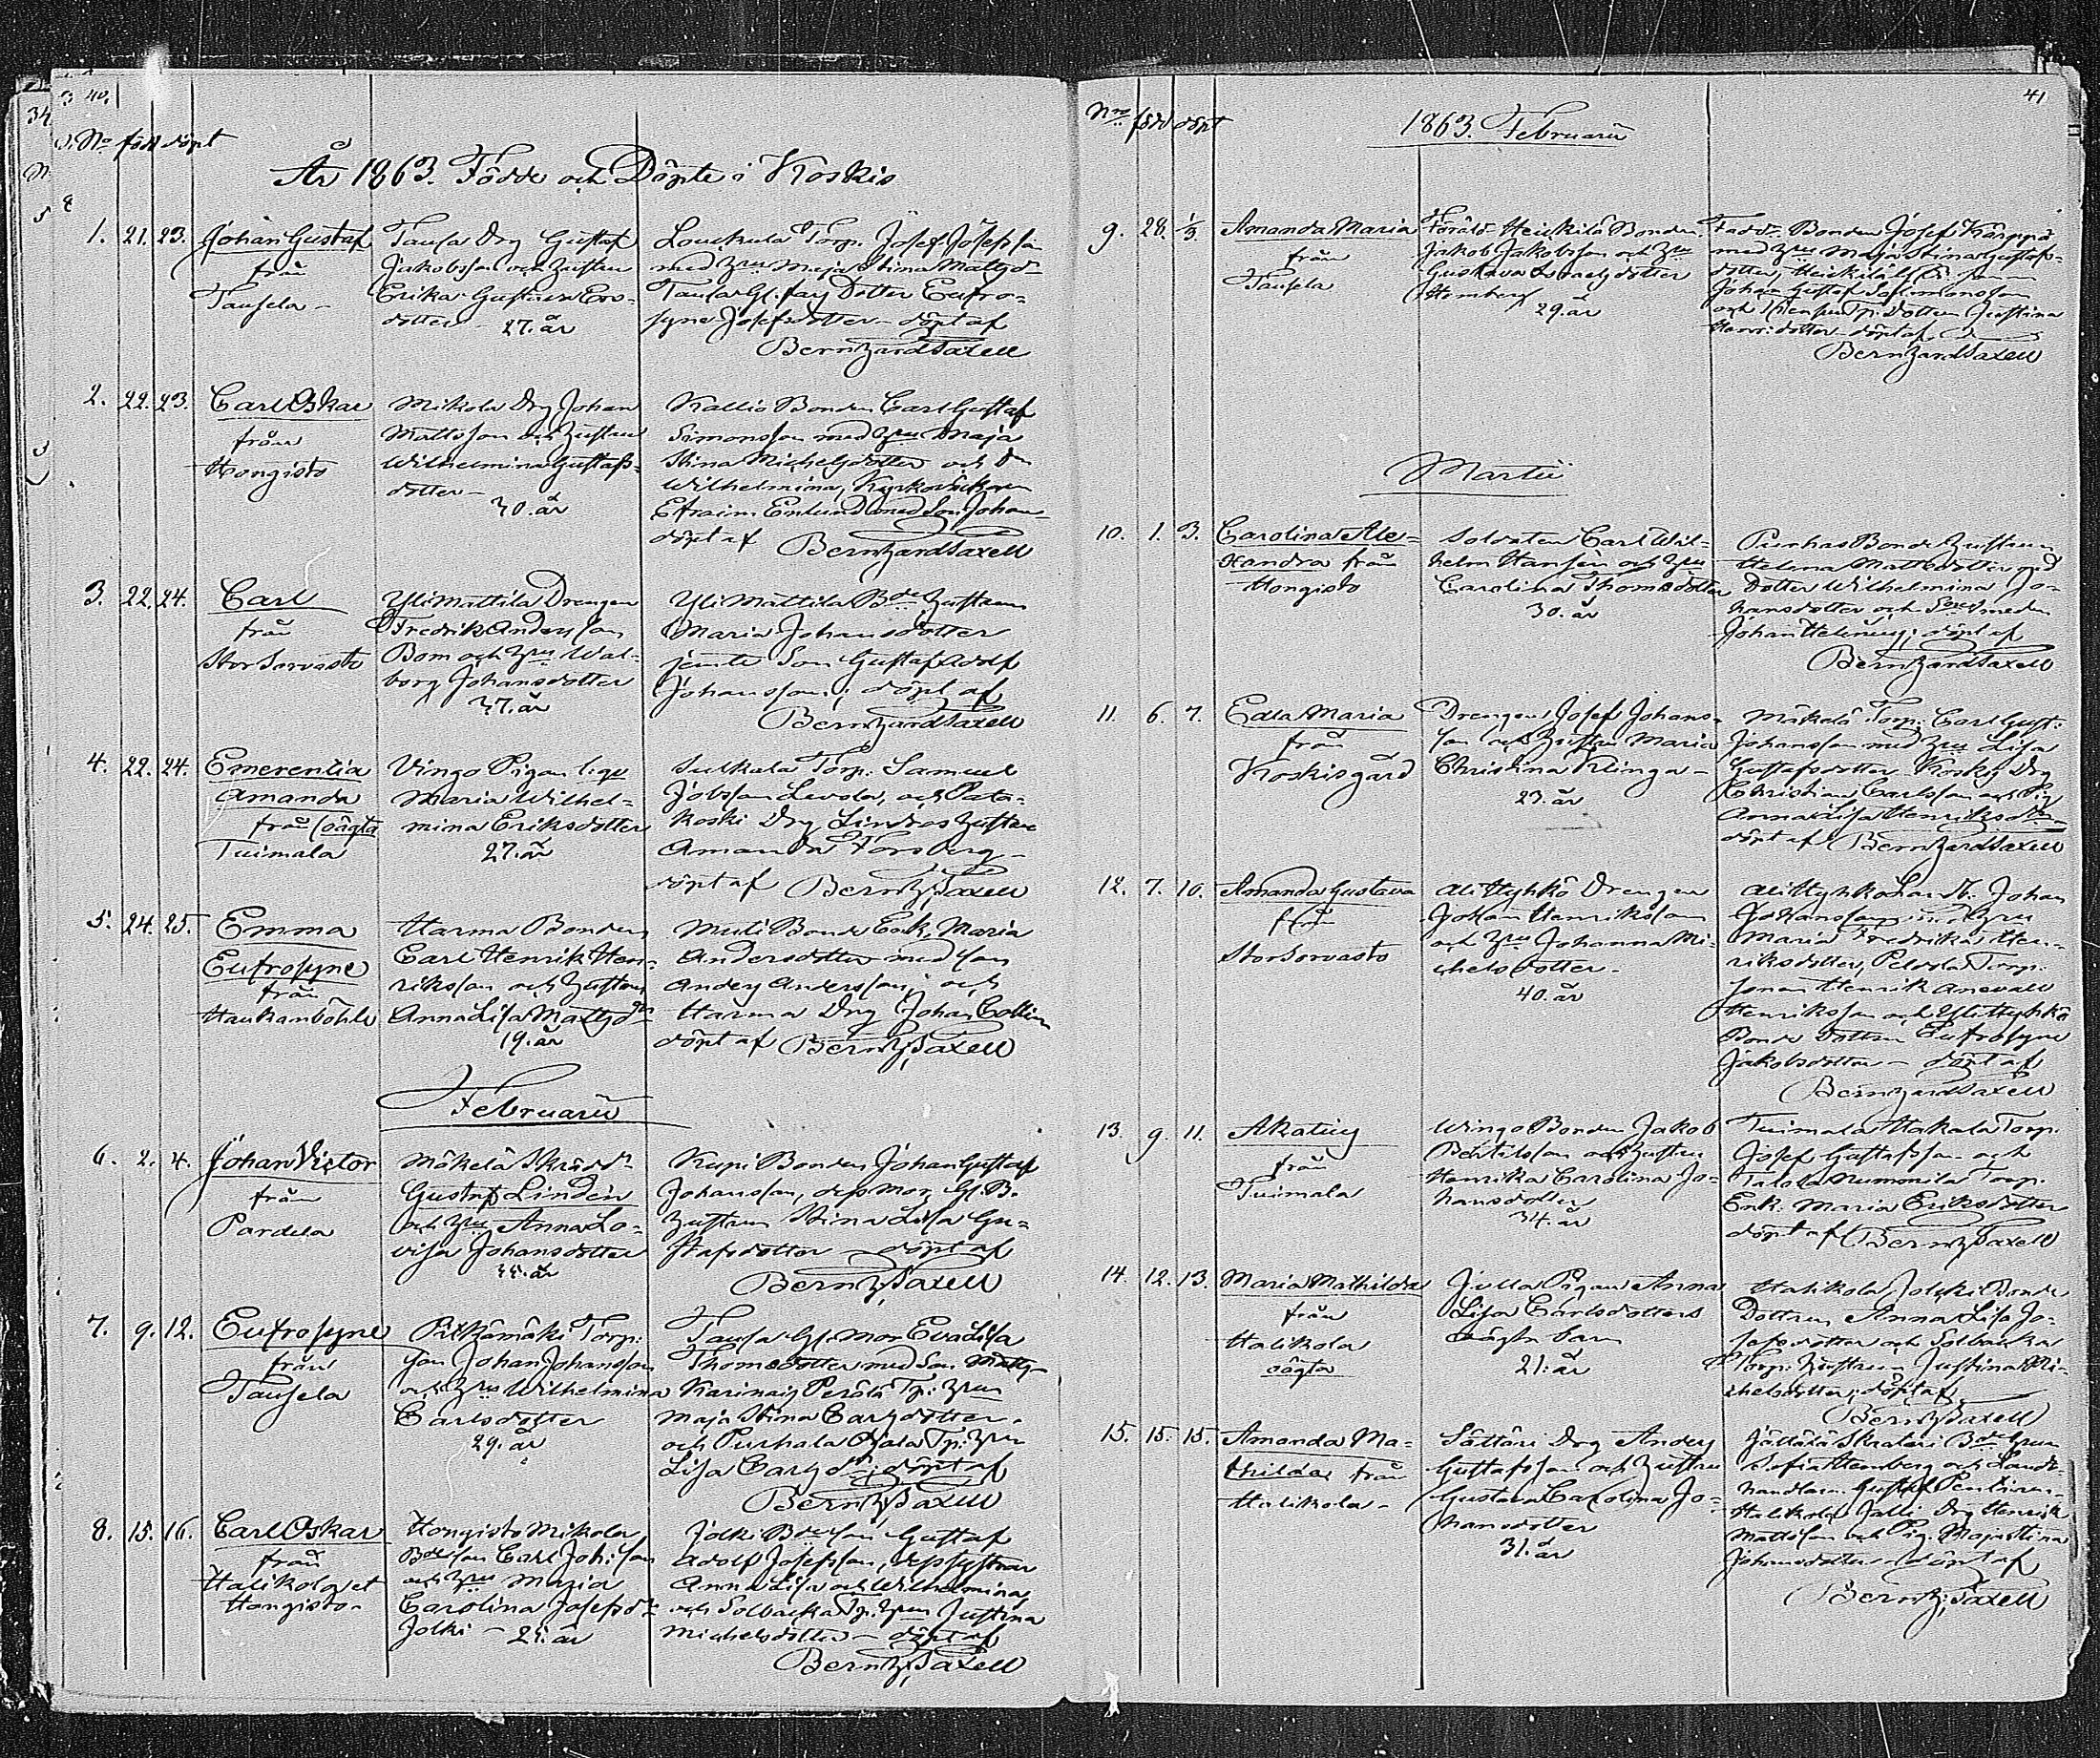 40.
No född döpt
År 1863. Födde och Döpte i Koskis
1. 21. 23. Johan Gustaf
från
Tausela
Tausa Drg Gustaf
Jakobsson och hustru
Erika Gustava Ers-
dotter
27. år
Loukula Torp. Josef Josefsson
med hru Maja Stina Mattsdr
Tausa Gl. Dotter Eufro-
syne Josefsdotter döpt af
Bernhard Saxell
2. 22. 23. Carl Oskar
från
Hongisto
Mikola Drg Johan
Mattsson och hustru
Wilhelmina Gustafs-
dotter
30. år
Kallio Bonden Carl Gustaf
Simonsson med hru Maja
Stina Michelsdotter och
Wilhelmina, Kyrkoväktaren
Efraim Enlund med Son Johan
döpt af Bernhard Saxell
3. 22. 24. Carl
från
Stor Sorvasto
Yli Mattila Drengen
Fredrik Andersson
Bom och hru Wal-
borg Johansdotter
37. år
Yli Mattila Bde hustrun
Maria Johansdotter
jemte Son Gustaf Adolf
Johansson; döpt af
Bernhard Saxell
4. 22. 24. Emerentia
Amanda
från (oägta
Tuimala
Vingo Pigan
Maria Wilhel-
mina Eriksdotter
27. år
Sulkala Torp. Samuel
Jobsson Levola, och Pata-
koski Drg Lindros hustru
Amanda Forsberg
döpt af Bernh. Saxell
5. 24. 25. Emma
Eufrosyne
från
Haukanböhle
Harma Bonden
Carl Henrik Hen-
riksson och hustru
Anna Lisa Mattsdr
19. år
Muti Bonde Enk. Maria
Andersdotter med son
Anders Andersson, och
Harma Drg Johan Collin
döpt af Bernh. Saxell
Februarii
6. 2. 4. Johan Victor
från
Pardela
Mäkelä Skrädd.
Gustaf Lindén
och hru Anna Lo-
visa Johansdotter
år
Kupi Bonden Johan Gustaf
Johansson, dess mor, Gl. B.
hustrun Stina Lisa Gu-
stafsdotter döpt af
Bernh. Saxell
7. 9. 12. Eufrosyne
från
Tausela
Pitkämäki Torp.
son Johan Johansson
och hru Wilhelmina
Carlsdotter
29. år
Tausa Gl. Mor Eva Lisa
Thomsdotter med Son Matts
Karinais Perälä Tp. hrun
Maja Stina Carlsdotter
och Purhala Ojala Tp. hru
Lisa Carlsdr; döpt af
Bernh. Saxell
8. 15. 16. Carl Oskar
från
Halikola et
Hongisto
Hongisto Mikola
Bdeson Carl Joh:son
och hru Maria
Carolina Josefsdr
Jolki år
Jolki Bdeson Gustaf
Adolf Josefsson, dess systrar
Anna Lisa och Wilhelmina
och Solbacka Tp. hrun Justina
Michelsdotter döpt af
Bernh. Saxell
41
Nro född döpt
1863. Februarii
9. 28. 1/3. Amanda Maria
från
Tausela
Heickilä Bonden
Jakob Jakobsson och hru
Gustava Israelsdotter
Homberg
29. år
Bonden Josef Kärppä
med hru Maja Stina Gustafs-
dotter, Heickilä
Johan Gustaf Salomonsson
och Tp. Dottern Justina
döpt af
Bernhard Saxell
Martii
10. 1. 3. Carolina Ale-
xandra från
Hongisto
Soldaten Carl Wil-
helm Hansén och hru
Carolina Thomsdotter
30. år
Purhas Bonde hustrun
Helena Mattsdotter med
Dotter Wilhelmina Jo-
hansdotter och Smeden
Johan döpt af
Bernhard Saxell
11. 6. 7. Edla Maria
från
Koskisgård
Drengen Josef Johans-
son och hustru Maria
Christina Klinga
23. år
Mäkelä Torp. Carl Gust.
Johansson med hru Lisa
Gustafsdotter Koskis Drg
Christian Carlsson och Pig
Anna Lisa Henriksdr
döpt af Bernhard Saxell
12. 7. 10. Amanda Gustava
från
Stor Sorvasto
Ali Hyhkö Drengen
Johan Henriksson
och hru Johanna Mi-
chelsdotter
40. år
Ali Hyhkö Johan
Johansson hru
Maria Fredrika Hen-
riksdotter, Peltola Torp.
sonen Henrik Anevall
Henriksson och Yli Hyhkö
Bonde Dottern Eufrosyne
Jakobsdotter döpt af
Bernhard Saxell
13. 9. 11. Akatius
från
Tuimala
Wingo Bonden Jakob
Bertilsson och hustru
Henrika Carolina Jo-
hansdotter
34. år
Tuimala Hakala Torp.
Josef Gustafsson och
Talola Nummila Torp.
Enk. Maria Eriksdotter
döpt af Bernh. Saxell
14. 12. 13. Maria Mathilda
från
Halikola
oägta
Julla Pigan Anna
Lisa Carlsdotters
oägta barn
21. år
Halikola, Jolki Bonde
Dottern Anna Lisa Jo-
sefsdotter och Solbacka
Torp. hustrun Justina Mi-
chelsdotter; döpt af
Bernh. Saxell
15. 15. 15. Amanda Ma-
thilda från
Halikola
Sättäri Drg Anders
Gustafsson och hustru
Gustava Carolina Jo-
hansdotter
31. år
Bde hrun
Sofia Hemberg och Land-
handlaren Gustaf
Halikola Jalli Drg Henrik
Mattsson och Pig. Maja Stina
Johansdotter döpt af
Bernh. Saxell